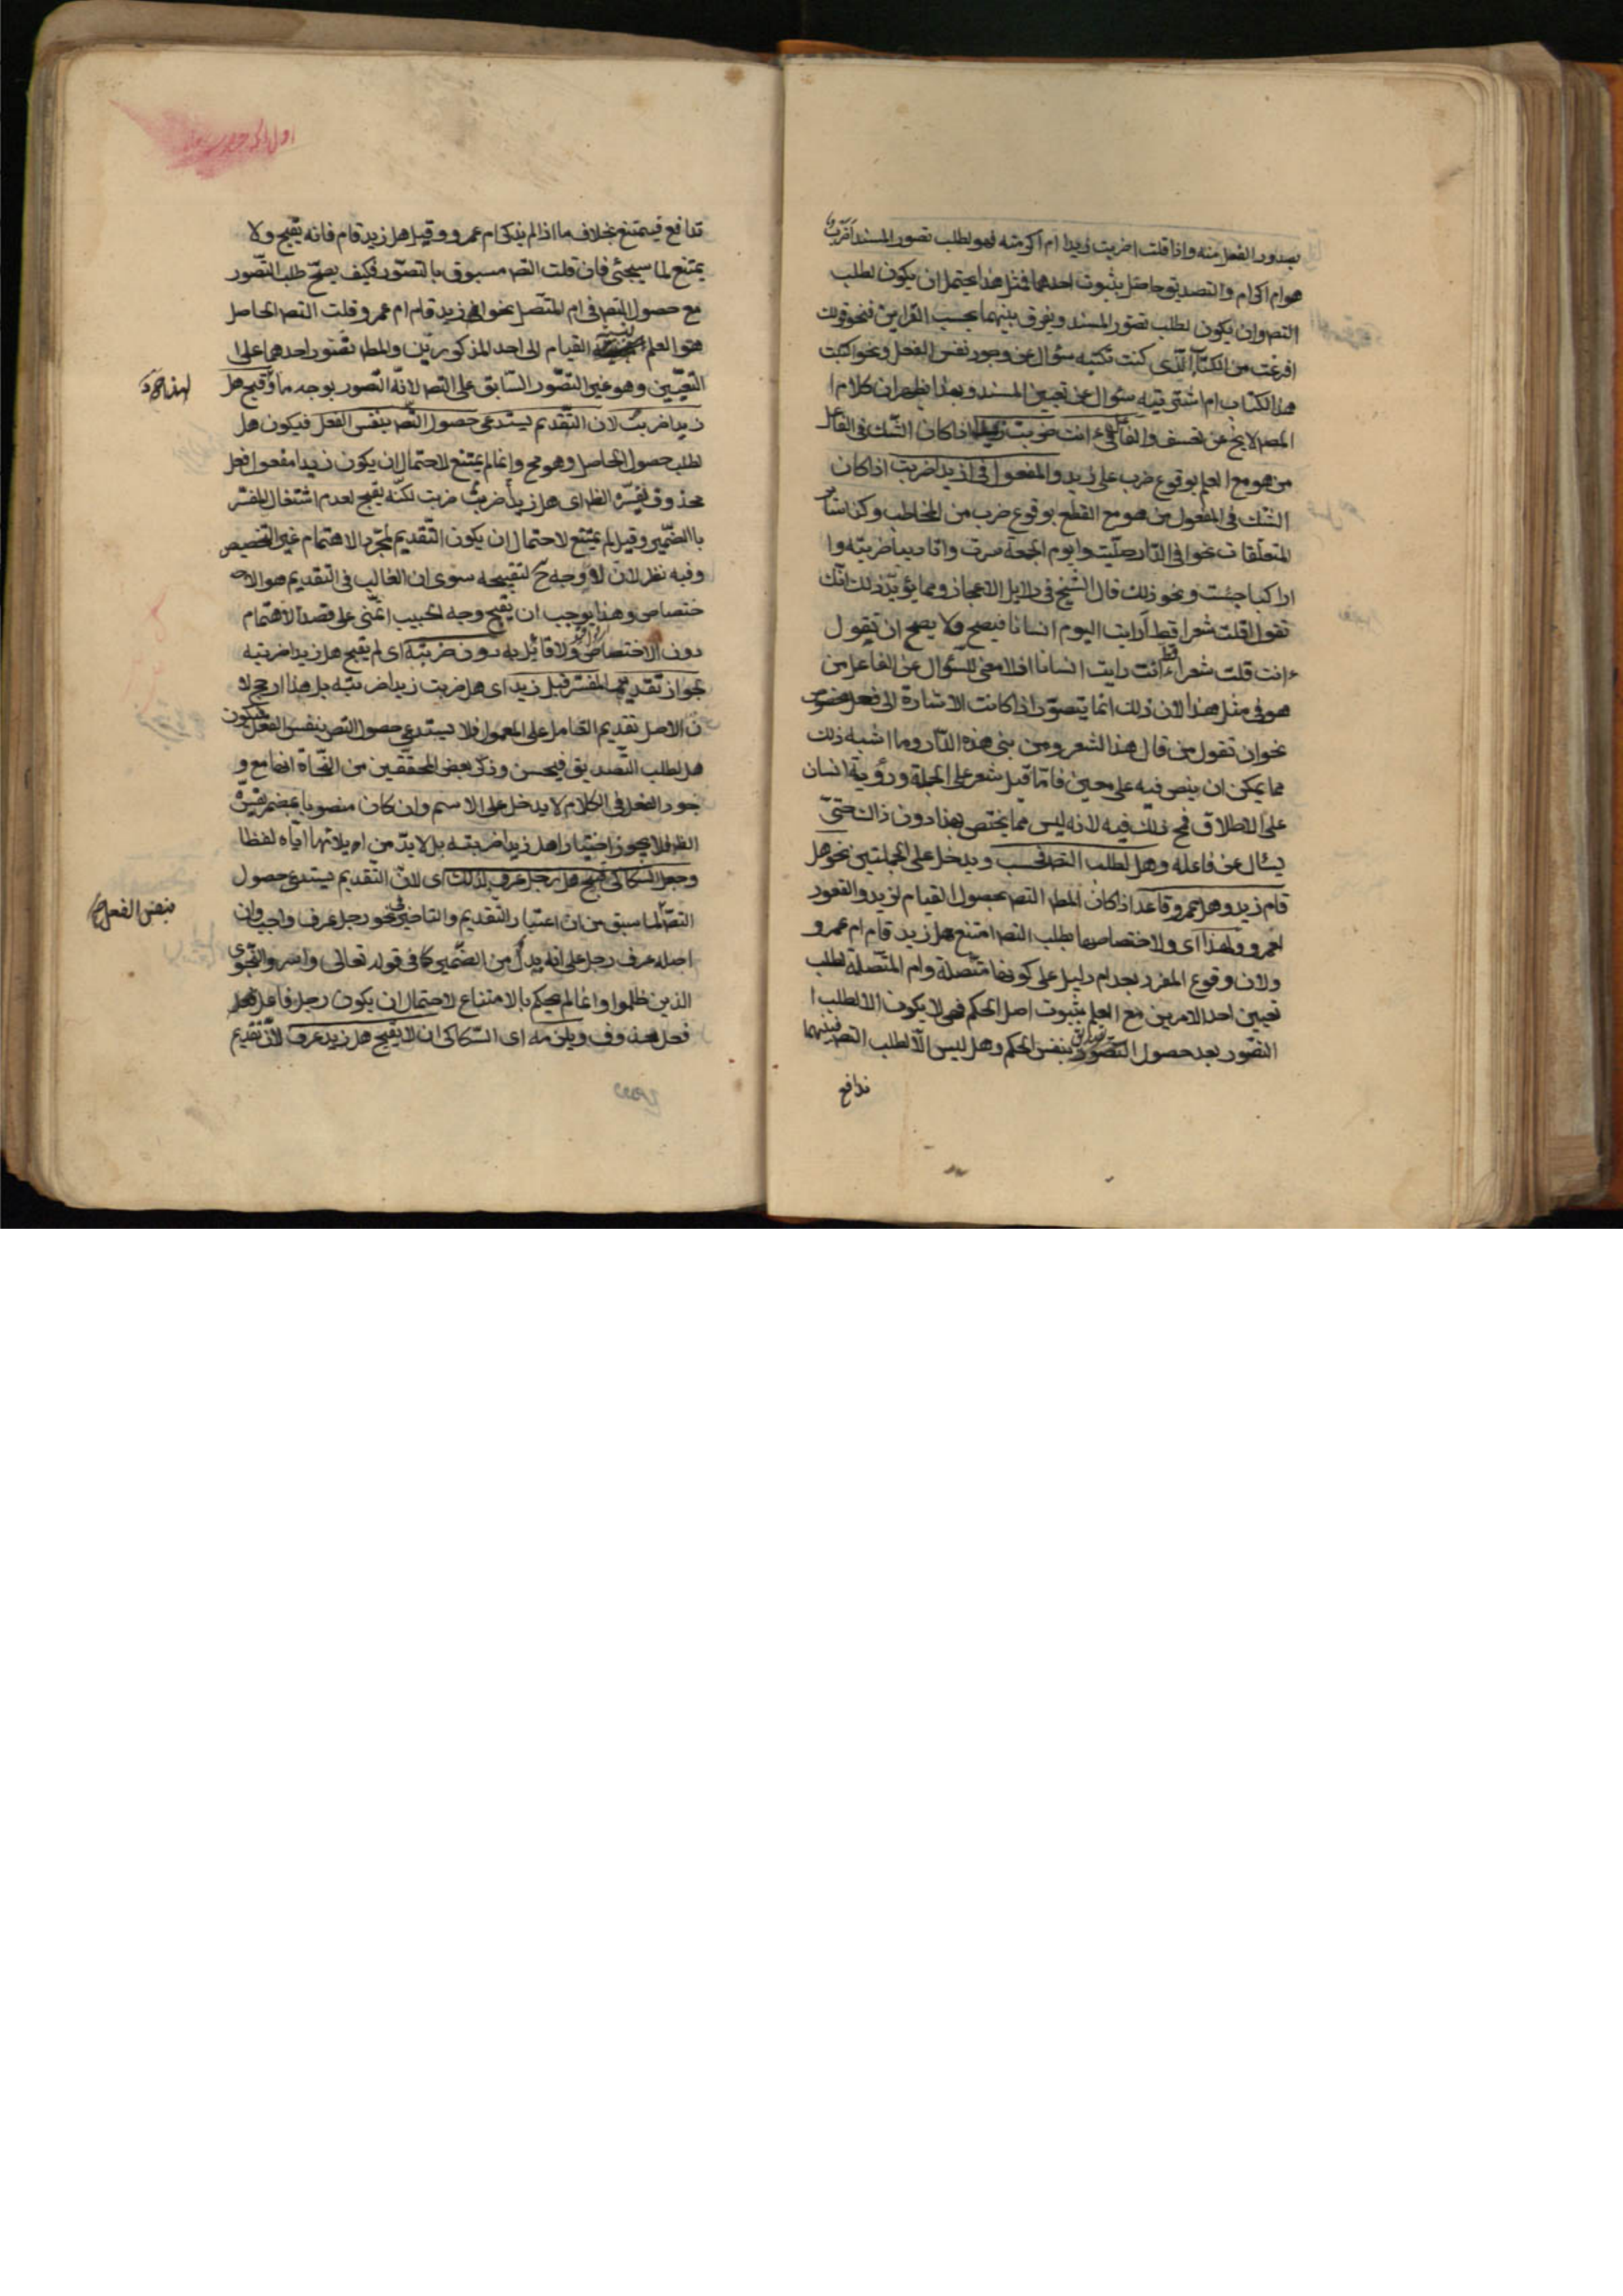 بصدور الفعل منه واذا قلت اضربت زيدا ام اكرمته فهو لطلب تصور المسند اضرب
هو ام اكرام والتصديق حاصل بثبوت احدهما فمثل هذا يحتمل ان يكون لطلب
التص وان يكون لطلب تصور المسند ويفرق بينهما بحسب القراين فنحو قولك
افرغت من الكتاب الذى كنت تكتبه سؤال عن وجود نفس الفعل ونحو اكتبت
هذا الكتاب ام اشتريته سؤال عن تعيين المسند وبهذا يظهر ان كلام
المص لا يخ عن تعسف والفاعل فى ءانت ضربت زيدا اذا كان الشك فى الفاعل
من هو مع العلم بوقوع ضرب على زيد والمفعول فى ازيدا ضربت اذا كان
الشك فى المفعول من هو مع القطع بوقوع ضرب من المخاطب وكذا سائر
المتعلقات نحو افى الدار صليت وايوم الجمعة سرت واتاديبا ضربته وا
راكبا جئت ونحو ذلك قال الشيخ فى دلايل الاعجاز ومما يؤيد ذلك انك
تقول اقلت شعرا قط ارايت اليوم انسانا فيصح ولا يصح ان تقول
ءانت قلت شعرا قط ءانت رايت انسانا اذ لا معنى للسؤال عن الفاعل من
هو فى مثل هذا لان ذلك انما يتصور اذا كانت الاشارة الى فعل مخصوص
نحو ان تقول من قال هذا الشعر ومن بنى هذه الدار وما اشبه ذلك
مما يمكن ان ينص فيه على معين فاما قيل شعر على الجملة ورؤية انسان
على الاطلاق فمح ذلك فيه لانه ليس مما يختص بهذا دون ذاك حتى
يسئال عن فاعله وهل لطلب التص فحسب ويدخل على الجملتين نحو هل
قام زيد وهل عمرو قاعد اذا كان المط التص بحصول القيام لزيد والقعود
لعمرو ولهذا اى ولاختصاصها بطلب التص امتنع هل زيد قام ام عمرو
ولان وقوع المفرد بعد ام دليل على كونها متصلة وام المتصلة لطلب
تعيين احد الامرين مع العلم بثبوت اصل الحكم فهى لا يكون الا لطلب ا
التصور بعد حصول التصديق بنفس الحكم وهل ليس الا لطلب التص فبينهما
تدافع
تدافع فيمتنع بخلاف ما اذا لم يذكر ام عمرو وقيل هل زيد قام فانه يقبح ولا
يمتنع لما سيجئى فان قلت التص مسبوق بالتصور فكيف يصح طلب التصور
مع حصول التص فى ام المتصل نحو ازيد قام ام عمرو قلت التص الحاصل
هو العلم بنسبة القيام الى احد المذكورين والمط تصور احدهما على ا
التعيين وهو غير التصور السابق على التص لانه التصور بوجه ما وقبح هل
زيدا ضربت لان التقديم يستدعى حصول التص بنفس الفعل فيكون هل
لطلب حصول الحاصل وهو مح وانما لم يمتنع لاحتمال ان يكون زيدا مفعول فعل
محذوف يفسره الظ اى هل ضربت زيدا ضربت لكنه يقبح لعدم اشتغال المفسر
بالضمير وقيل لم يمتنع لاحتمال ان يكون التقديم لمجرد الاهتمام غير التخصيص
وفيه نظر لان لا وجه ح لتقبيحه سوى ان الغالب فى التقديم هو الا
ختصاص وهذا يوجب ان يقبح وجه الحبيب اتمنى على قصد الاهتمام
دون الاختصاص ولا قائل به دون ضربته اى لم يقبح هل زيدا ضربته
لجواز تقدير المفسر قبل زيدا اى هل ضربت زيدا ضربته بل هذا ارجح لا
ن الاصل تقديم العامل على المعمول فلا يستدعى حصول التص بنفس الفعل فيكون
هل لطلب التصديق فيحسن وذكر بعض المحققين من النحاة انها مع و
جود الفعل فى الكلام لا يدخل على الاسم وان كان منصوبا بمضمر يفسره
الظ فلا يجوز اختيارا هل زيدا ضربته بل لا بد من ان يلائها اياه لفظا
وجعل السكاكى قبح هل رجل عرف لذلك اى لان التقديم يستدعى حصول
التص لما سبق من ان اعتبار التقديم والتاخير فى نحو رجل عرف واجب وان
اصله عرف رجل على انه بدل من الضمير كما فى قوله تعالى واسروا النجوى
الذين ظلموا وانما لم يحكم بالامتناع لاحتمال ان يكون رجل فاعل فعل
فعل محذوف ويلزمه اى السكاكى ان لا يقبح هل زيد عرف لان تقديم
بنفس الفعل